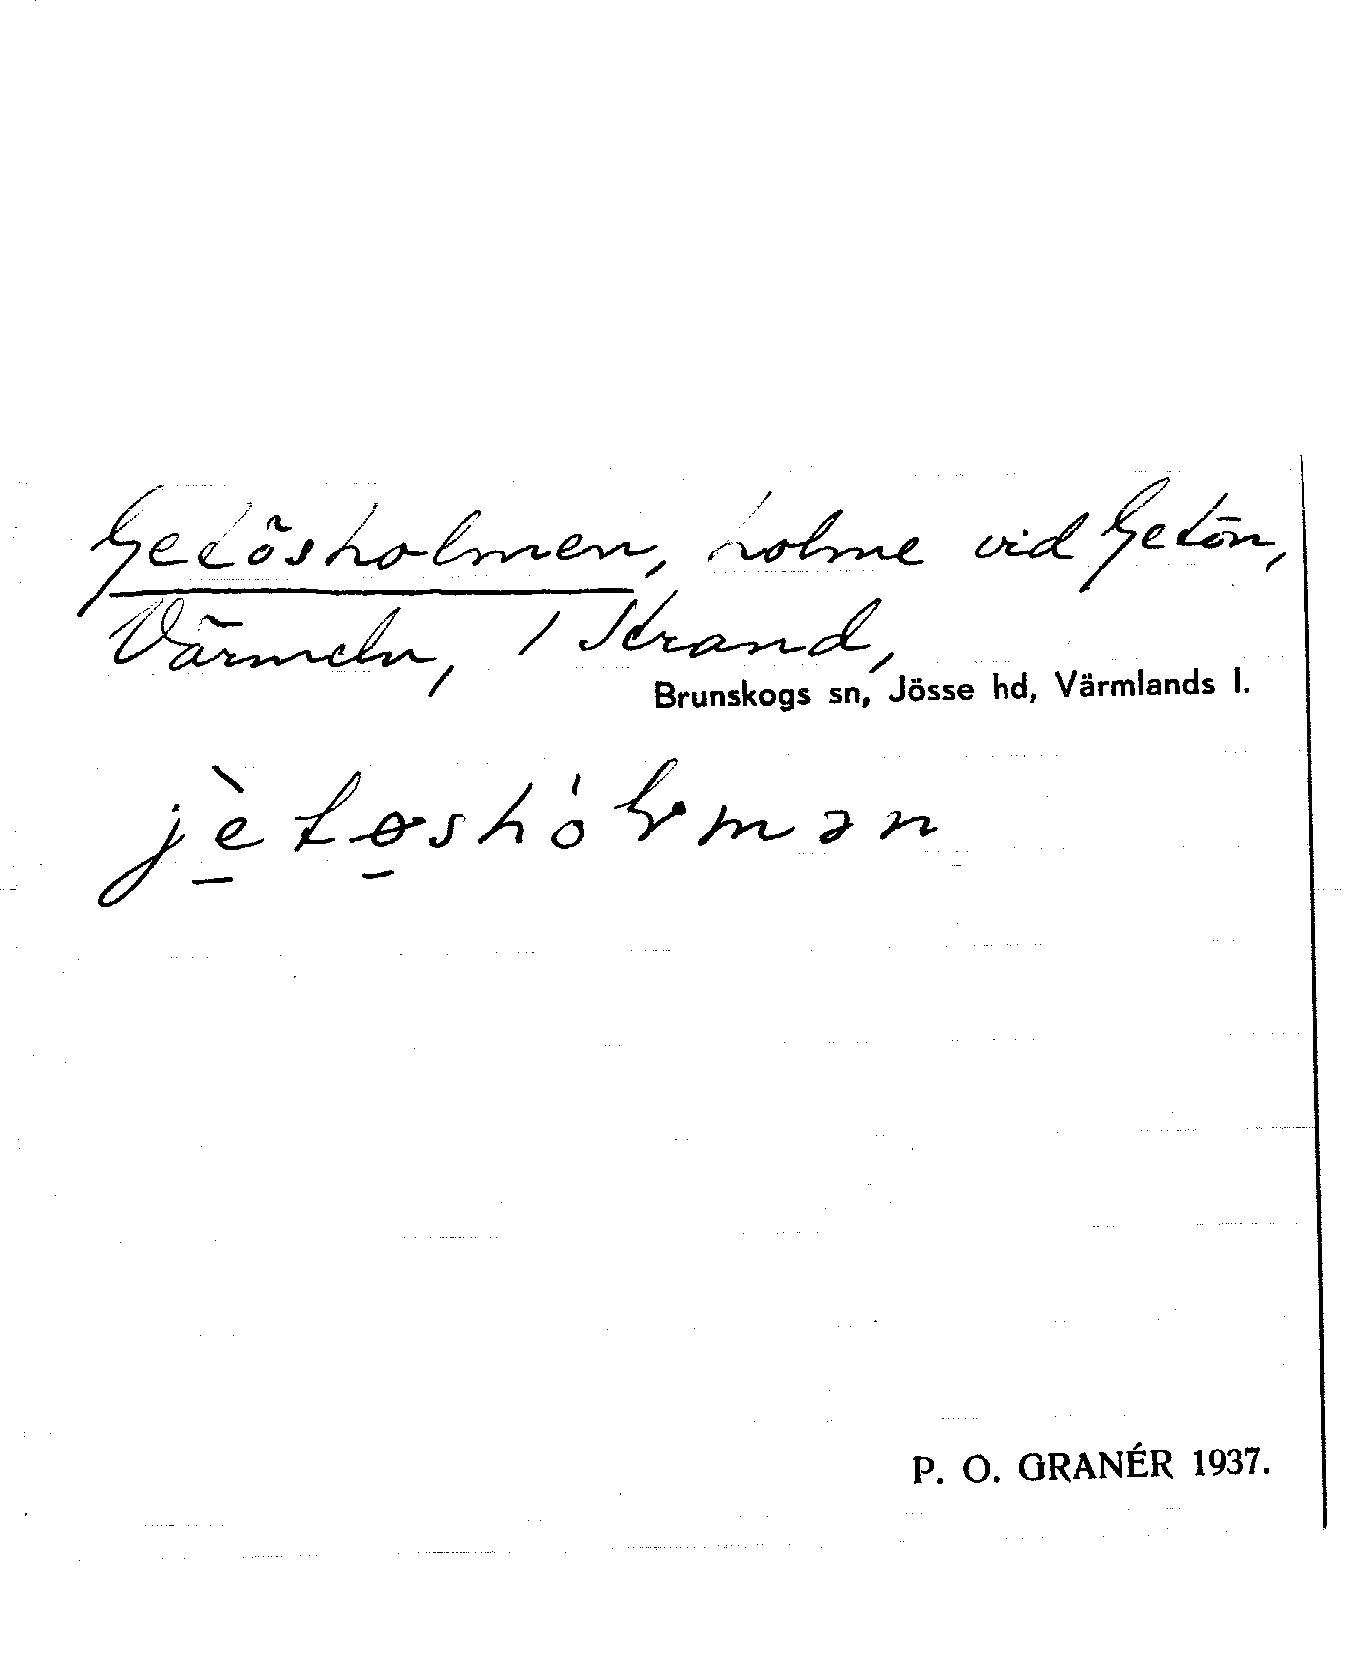 Getösholmen, holme vid Getön,
Värmeln, 1 Strand,
Brunskogs sn, Jösse hd, Värmlands l.
jètøshólmən
P. O. GRANÉR 1937.